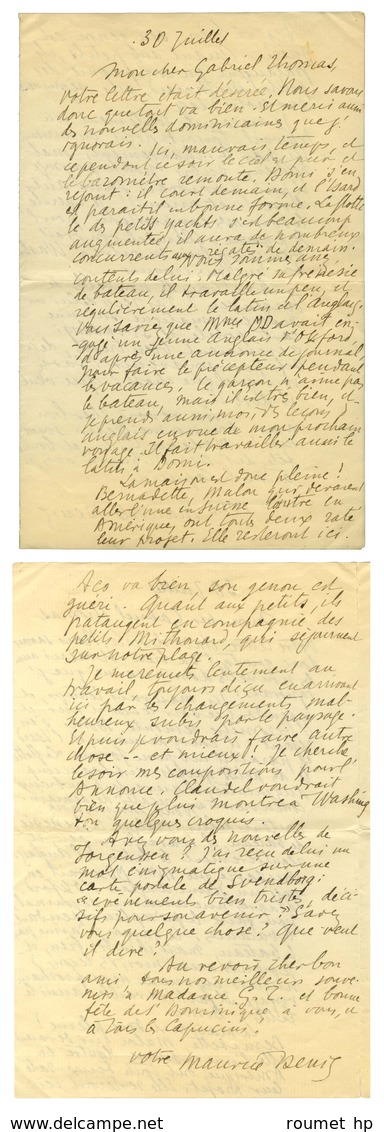 30 Juillet
Mon cher Gabriel Thomas,
Votre lettre était désirée. Nous savons
donc que tout va bien. Et merci aussi
des nouvelles dominicaines que j'
ignorais. Ici, mauvais temps, et
cependant ce soir le ciel est pur et
le baromètre remonte. Domi s'en
réjouit : il court demain, et l'Isard
est paraît-il en bonne forme. La flotte
des petits yachts s'est beaucoup
augmentée, il aura de nombreux
concurrents aux régates de demain.
nous sommes
contents de lui. Malgré sa frénésie
de bateau, il travaille un peu, et
régulièrement le latin et l'anglais.
Vous savez que Mme avait en-
gagé un jeune Anglais d'Oxford
d'après une annonce de journal,
pour faire le précepteur pendant
les vacances. Le garçon n'aime pas
le bateau, mais il est très bien, et
je prends aussi, moi, des leçons d'
anglais en vue de mon prochain
voyage. Il fait travailler aussi le
latin à Domi.
La maison est donc pleine !
Bernadette, Malon qui devaient
aller l'une en Suisse l'autre en
Amérique, ont toutes deux raté
leur projet. Elle resteront ici.
Aco va bien, son genou est
guéri. Quant aux petits, ils
pataugent en compagnie des
petits Mithouard, qui séjournent
sur notre plage.
Je me remets lentement au
travail, toujours déçu en arrivant
ici par les changements mal-
heureux subis par le paysage.
Et puis je voudrais faire autre
chose -- et mieux ! Je cherche
le soir mes compositions pour l'
Annonce. Claudel voudrait
bien que plus montre à Washing
ton quelques croquis.
Avez-vous des nouvelles de
Jorgensen ? J'ai reçu de lui un
mot énigmatique sur une
carte postale de Svendborg :
"événements bien tristes, déci-
sifs pour son avenir". Savez
vous quelque chose ? Que veut
il dire ?
Au revoir, cher bon
ami, tous nos meilleurs souve-
nirs à Madame G. T. et bonne
fête de St Dominique à vous, et
à tous les Capucins.
Votre Maurice Denis
© roumet hp